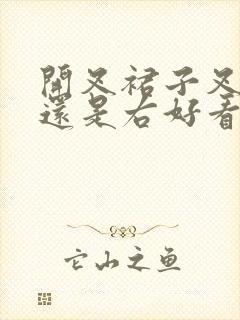 開叉裙子叉
還是右好看
它山之鱼